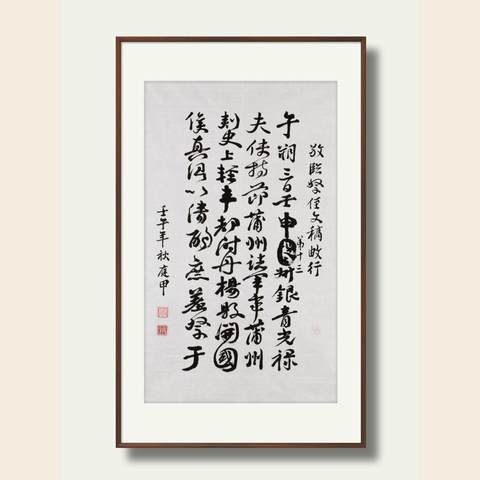 敬臨祭侄文稿數行
午朔三日壬申第十三叔銀青光祿
夫使持節蒲州諸軍事蒲州
刺史上輕車都尉丹楊縣開國
侯真卿以清酌庶羞祭于
壬午年秋庭甲